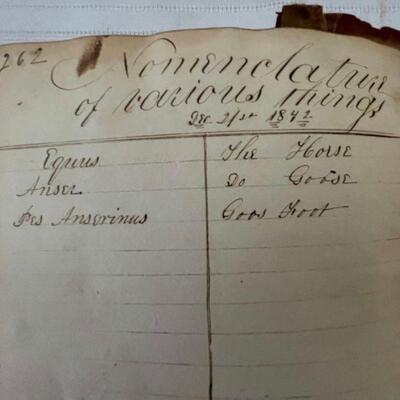 262
Nomenclature
of various things
Dec 21st 1842
Equus The Horse
Anser Do Goose
Pes Anserinus Goos Foot